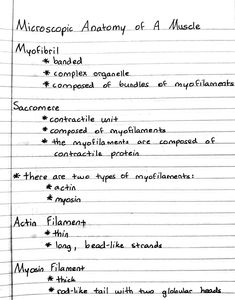 Microscopic Anatomy of A Muscle
Myofibril
* banded
* complex organelle
* composed of bundles of myofilaments
Sacromere
* contractile unit
* composed of myofilaments
* the myofilaments are composed of
contractile protein
* there are two types of myofilaments:
* actin
* myosin
Actin Filament
* thin
* long, bead-like strands
Myosin Filament
* thick
* rod-like tail with two globular heads